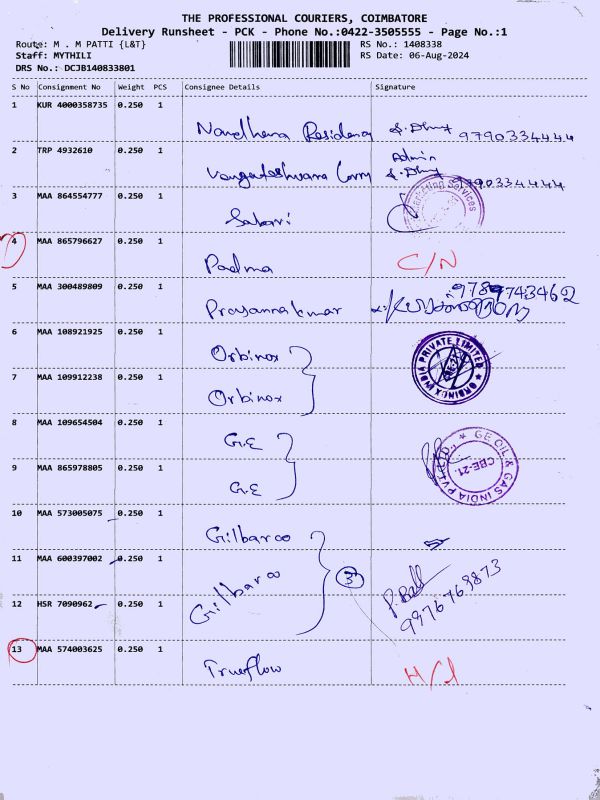 THE PROFESSIONAL COURIERS, COIMBATORE
Delivery Runsheet - PCK - Phone No.:0422-3505555 - Page No.:1
Route: M . M PATTI {L&T} RS No.: 1408338
Staff: MYTHILI RS Date: 06-Aug-2024
DRS No.: DCJB140833801
S No Consignment No Weight PCS Consignee Details Signature
1 KUR 4000358735 0.250 1
Nandhana Residency S. Dhu 9790334444
2 TRP 4932610 0.250 1
Admin
Vengateshwara Lorry S. Dhu 9790334444
3 MAA 864554777 0.250 1
Marketing Services
Sabari
4 MAA 865796627 0.250 1
Padma C/N
5 MAA 300489809 0.250 1
9789743462
Prasannakumar
6 MAA 108921925 0.250 1
Orbinox
ORBINOX INDIA PRIVATE LIMITED
7 MAA 109912238 0.250 1
Orbinox
8 MAA 109654504 0.250 1
G.E
GE OIL & GAS INDIA PVT. LTD.
CBE-21.
9 MAA 865978805 0.250 1
G.E
10 MAA 573005075 0.250 1
Gilbarco
11 MAA 600397002 0.250 1
Gilbarco 3
12 HSR 7090962 0.250 1
9976769873
13 MAA 574003625 0.250 1
Trueflow